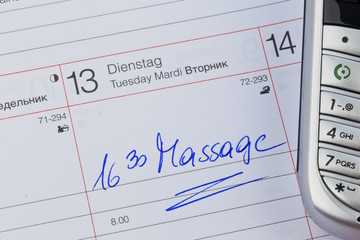 13 Dienstag 14
Tuesday Mardi Вторник
едельник
71-294
72-293
16 30 Massage
8.00
1-.@
4 GHI
7 PQRS